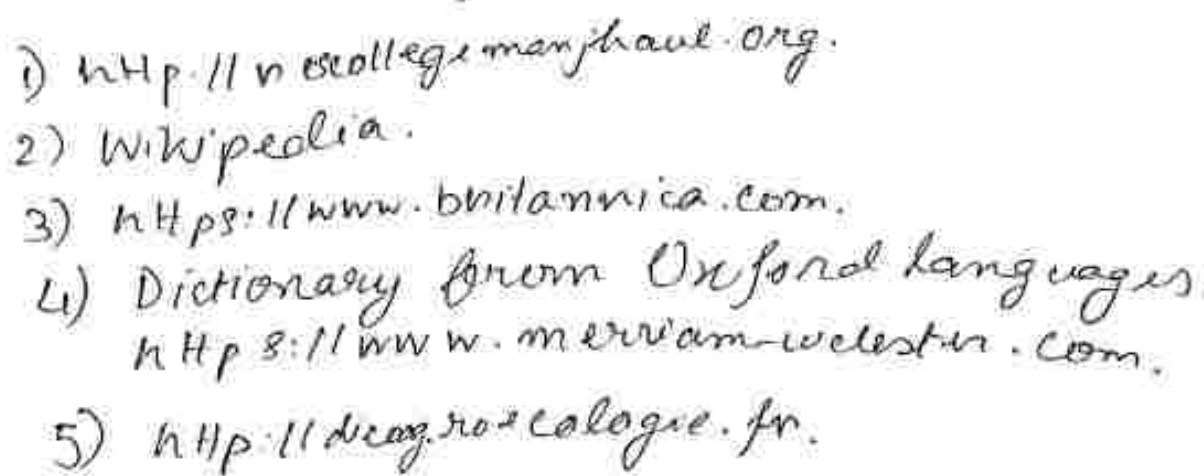 1) http://rcscollegemanjhaul.org.
2) Wikipedia.
3) https://www.britannica.com.
4) Dictionary from Oxford Languages
https://www.merriam-webster.com.
5) http://dicoagroecologie.fr.